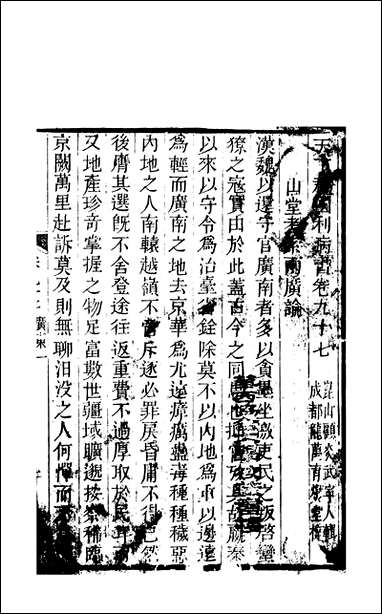 天下郡國利病書卷九十七
崑山顧炎武寧人輯
成都龍萬育燮堂校
山堂考索南廣論
漢魏以還守官廣南者多以貪墨坐激吏民之叛啓蠻
獠之寇實由於此蓋古今之同患也
以來以守令爲治臺省銓除莫不以內地爲重以邊遠
爲輕而廣南之地去京華爲尤遠瘴癘蠱毒種種穢惡
內地之人南轅越嶺不啻斥逐必罪戾昏庸不得已然
後膺其選旣不舍登途往返重費不過厚取於民耳
又地產珍奇掌握之物足富數世疆域曠遐按察稀臨
京闕萬里赴訴莫及則無聊汨沒之人何憚而不